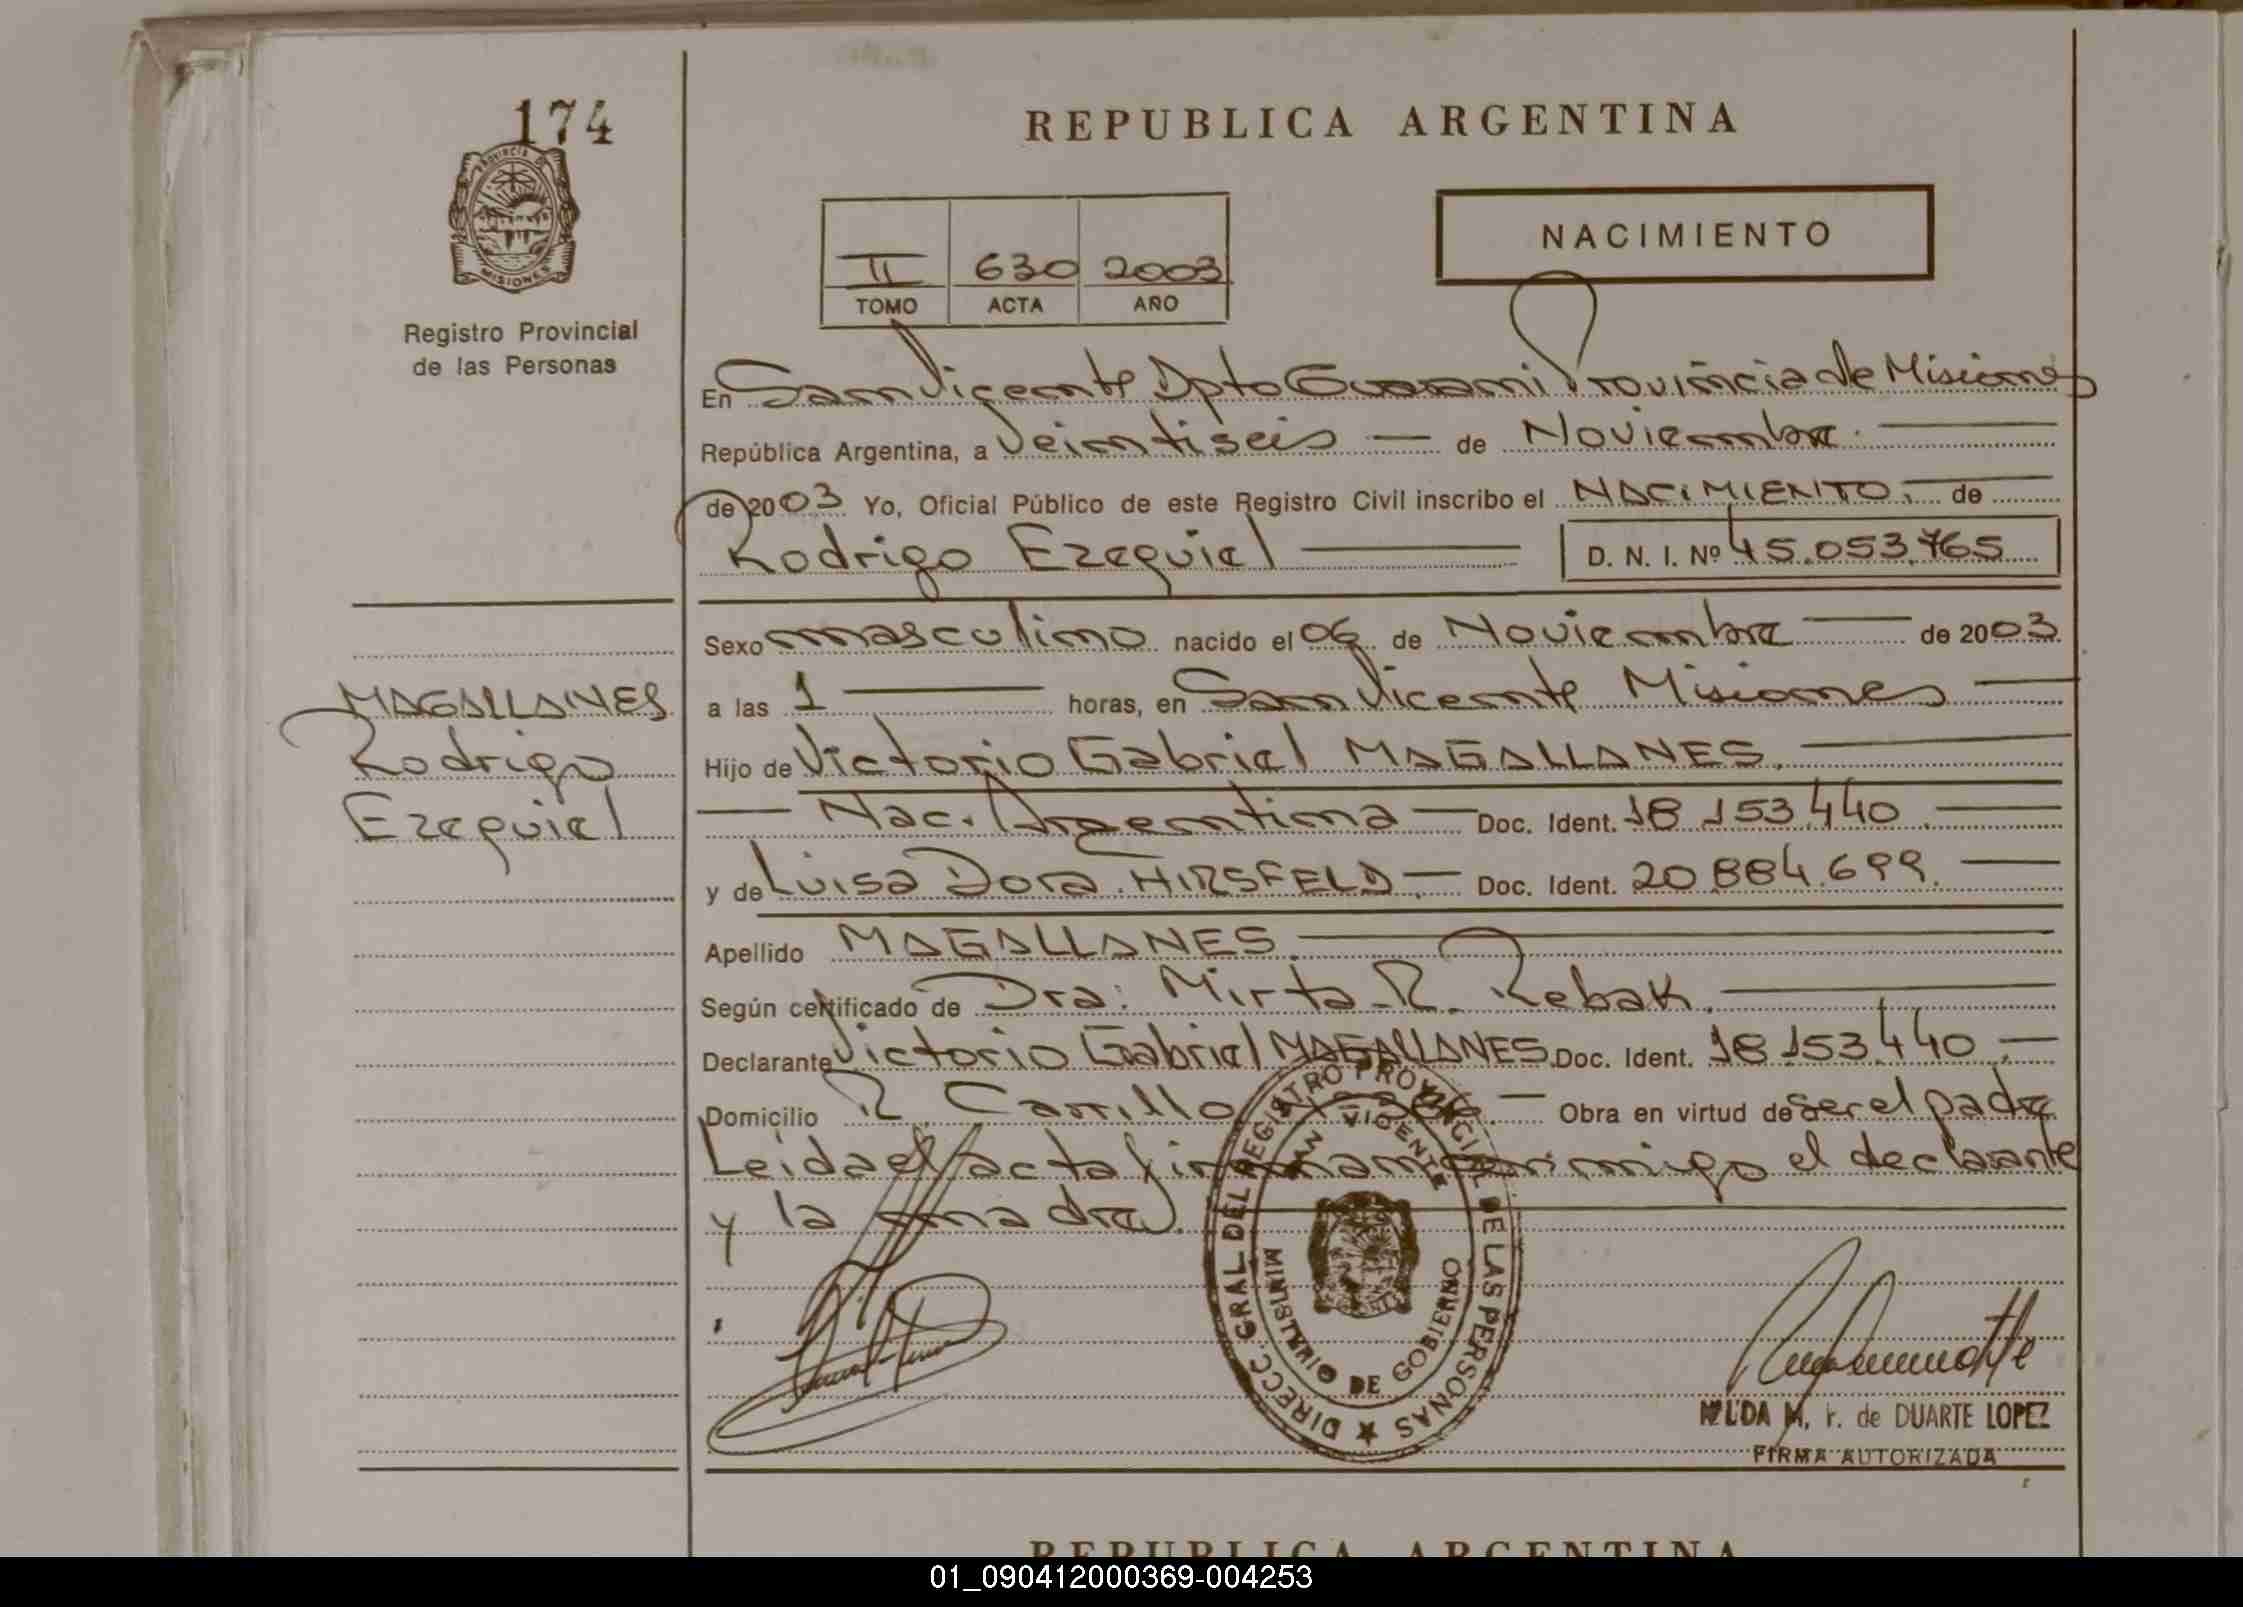 174
PROVINCIA DE
MISIONES
Registro Provincial
de las Personas
REPUBLICA ARGENTINA
NACIMIENTO
II 630 2003
TOMO ACTA AÑO
En San Vicente Dpto Guarani Provincia de Misiones
República Argentina, a Veintiseis — de Noviembre. —
de 2003 Yo, Oficial Público de este Registro Civil inscribo el NACIMIENTO. de
Rodrigo Ezequiel — D. N. I. Nº 45.053.765
Sexo masculino nacido el 06 de Noviembre — de 2003
a las 1 — horas, en San Vicente Misiones —
Hijo de Victorio Gabriel MAGALLANES. —
— Nac. Argentina — Doc. Ident. 18.153.440. —
y de Luisa Dora HIRSFELD — Doc. Ident. 20.884.699. —
Apellido MAGALLANES. —
Según certificado de Dra: Mirta R. Rebak. —
Declarante Victorio Gabriel MAGALLANES. Doc. Ident. 18.153.440. —
Domicilio R. Carrillo — Obra en virtud de ser el padre
Leida el acta firman con migo el declarante
y la madre.
MAGALLANES
Rodrigo
Ezequiel
DIRECC. GRAL. DEL REGISTRO PROVINCIAL DE LAS PERSONAS
SAN VICENTE
MINISTERIO DE GOBIERNO
DE DUARTE LOPEZ
FIRMA AUTORIZADA
REPUBLICA ARGENTINA
01_090412000369-004253